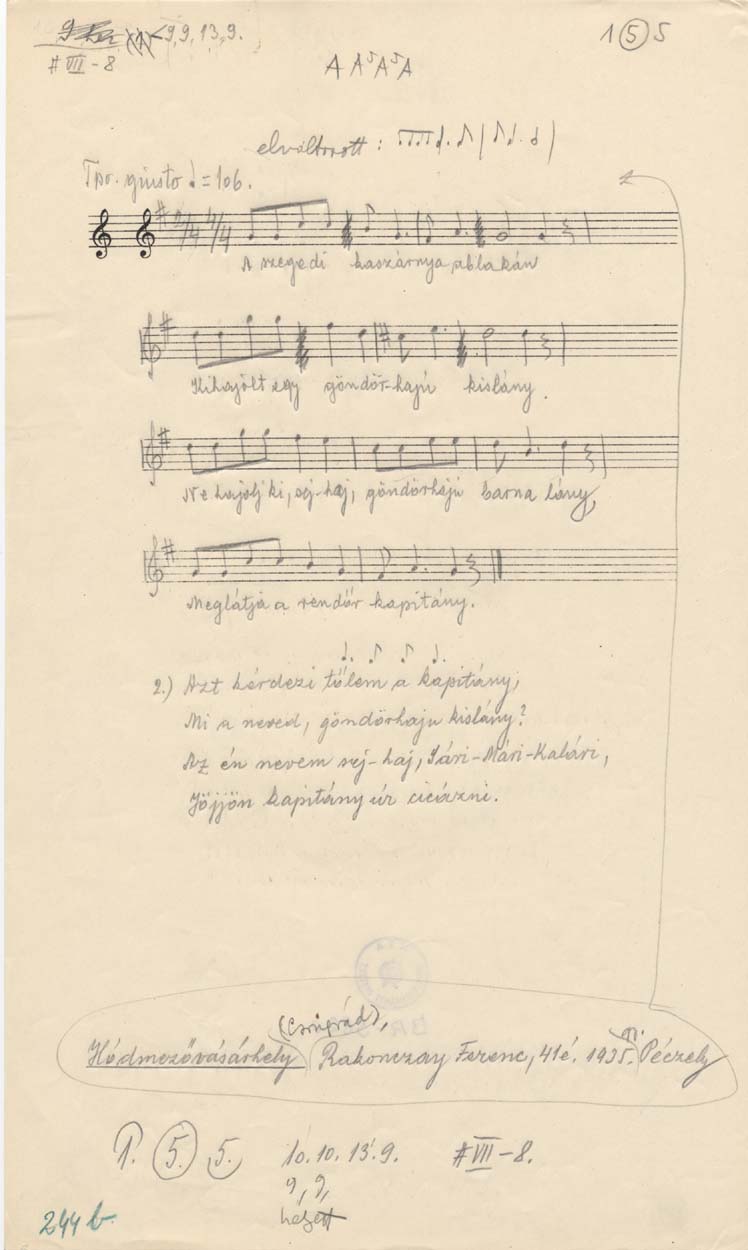 9, 9, 13, 9.
1 5 5
# VII - 8
A A⁵ A⁵ A
elváltozott :
Tpo. giusto = 106.
2/4 4/4
A szegedi kaszárnya ablakán
Kihajolt egy göndör-hajú kislány.
Ne hajolj ki, sej-haj, göndörhajú barna lány,
Meglátja a rendőr kapitány.
2.) Azt kérdezi tőlem a kapitány,
Mi a neved, göndörhaju kislány?
Az én nevem sej-haj, Sári-Mári-Kalári,
Jöjjön kapitány úr cicázni.
(Csongrád),
Hódmezővásárhely Rakonczay Ferenc, 41 é. 1935. Péczely
1. 5. 5. 10. 10. 13. 9. # VII - 8.
9, 9,
helyett
244 b.